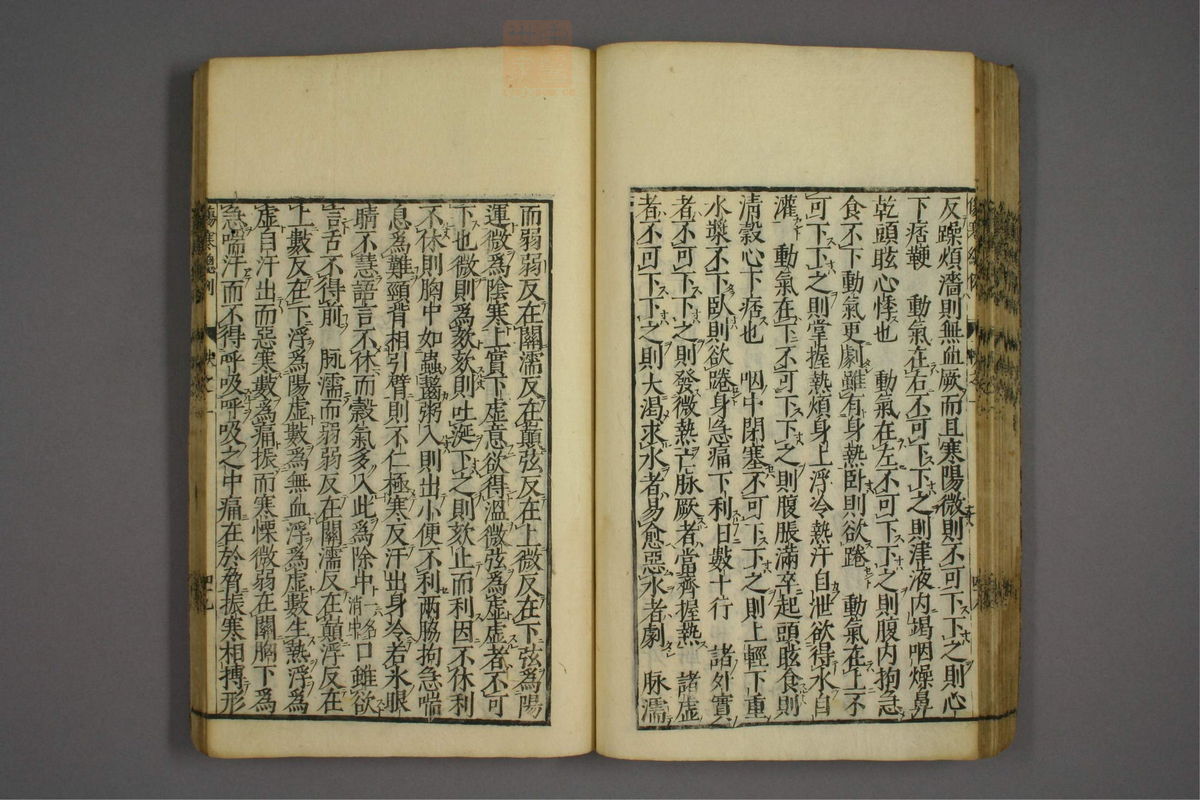 反躁煩濇則無血厥而且寒陽微則不可下下之則心
下痞鞕　動氣在右不可下下之則津液內竭咽燥鼻
乾頭眩心悸也　動氣在左不可下下之則腹內拘急
食不下動氣更劇雖有身熱臥則欲踡　動氣在上不
可下下之則掌握熱煩身上浮冷熱汗自泄欲得水自
灌　動氣在下不可下下之則腹脹滿卒起頭眩食則
清穀心下痞也　咽中閉塞不可下下之則上輕下重
水漿不下臥則欲踡身急痛下利日數十行　諸外實
者不可下下之則發微熱亡脉厥者當齊握熱　諸虛
者不可下下之則大渴求水者易愈惡水者劇　脉濡
而弱弱反在關濡反在巔弦反在上微反在下弦為陽
運微爲陰寒上實下虛意欲得溫微弦爲虛虛者不可
下也微則爲欬欬則吐涎下之則欬止而利因不休利
不休則胸中如蟲齧粥入則出小便不利兩脇拘急喘
息為難頸背相引臂則不仁極寒反汗出身冷若氷眼
睛不慧語言不休而穀氣多入此爲除中一名消中口雖欲
言舌不得前　脉濡而弱弱反在關濡反在巔浮反在
上數反在下浮爲陽虛數爲無血浮爲虛數生熱浮爲
虛自汗出而惡寒數爲痛振而寒慄微弱在關胸下爲
急喘汗而不得呼吸呼吸之中痛在於脅振寒相搏形
傷寒總例